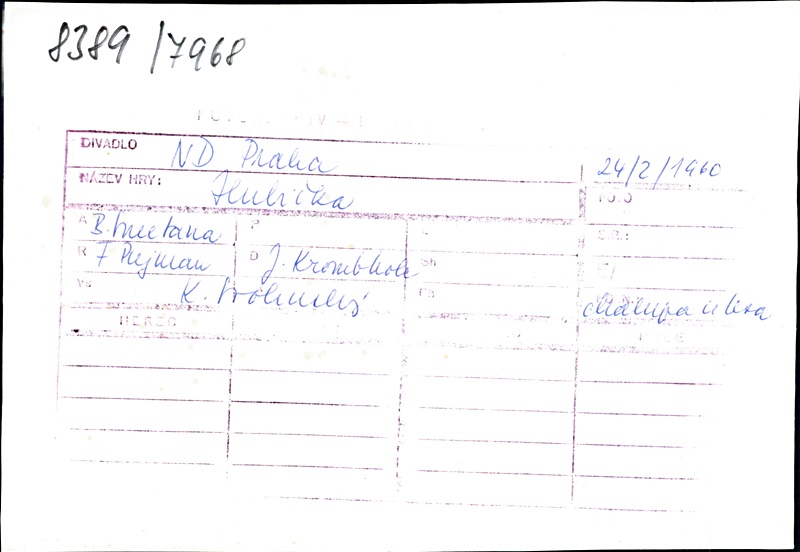 8389/7968
DIVADLO ND Praha 24/2/1960
NÁZEV HRY: Hubička
A B. Smetana P
R F Pujman D J. Krombholc Sh
K. Svolinský chalupa u lesa
HEREC